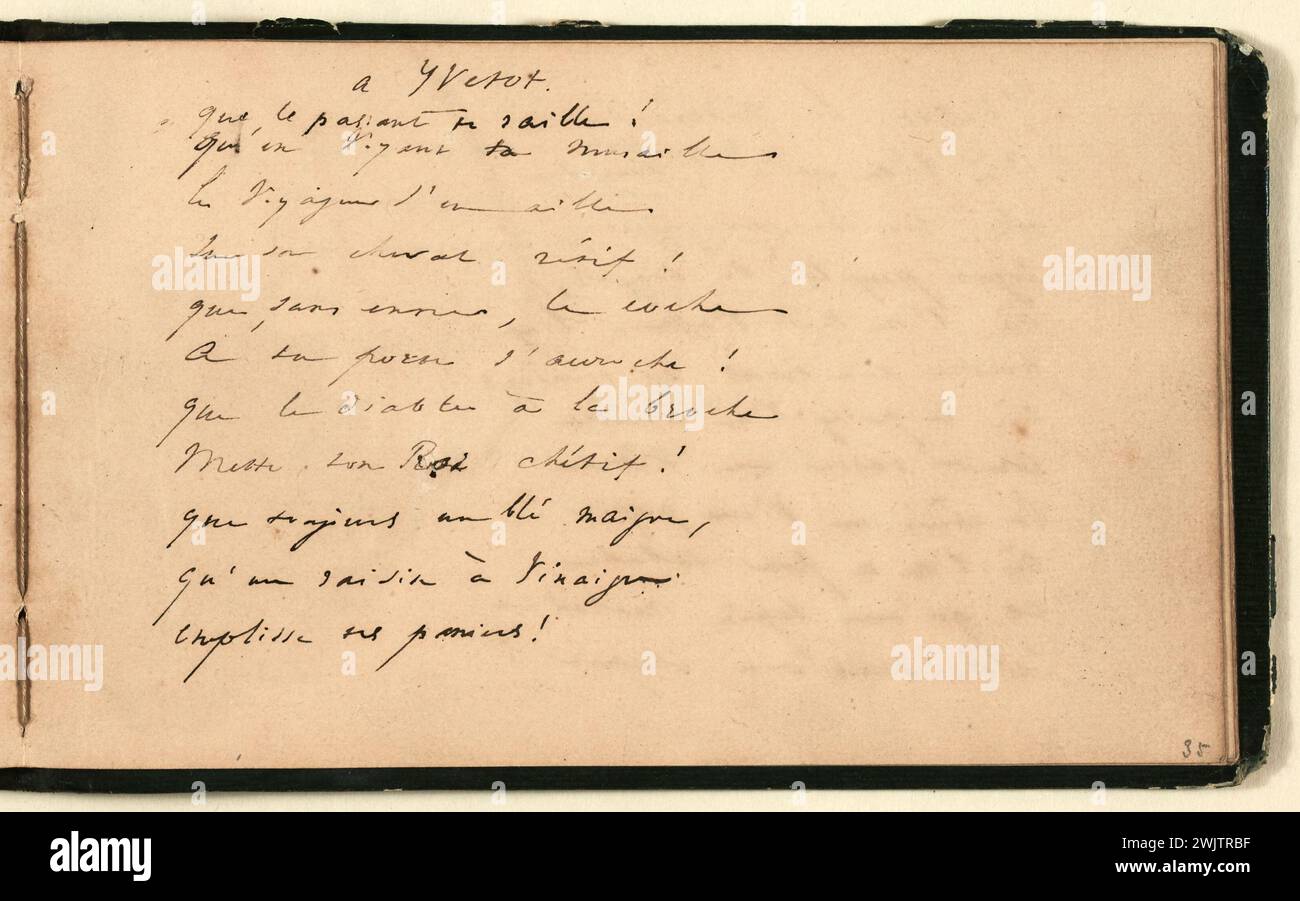 a Yvetot.
que le passant te raille !
qu'en voyant ta muraille
le voyageur s'en aille
sur son cheval rétif !
que, sans envie, le coche
A ta porte s'accroche !
que le diable à la broche
Mette ton Roi chétif !
que toujours un blé maigre,
qu'un raisin à vinaigre
emplisse tes paniers !
35
alamy
alamy
alamy
alamy
alamy
alamy
alamy
Image ID: 2WJTRBF
www.alamy.com